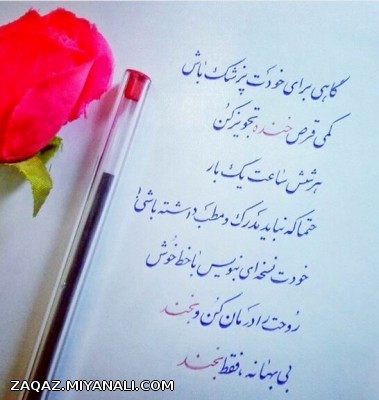 گاهی برای خودت پزشک باش
کمی قرص خنده تجویز کن
هر شش ساعت یک بار
حتما که نباید مدرک و مطب داشته باشی!
خودت نسخه‌ای بنویس با خط خوش
روحت را درمان کن و بخند
بی بهانه، فقط بخند
ZAQAZ.MIYANALI.COM